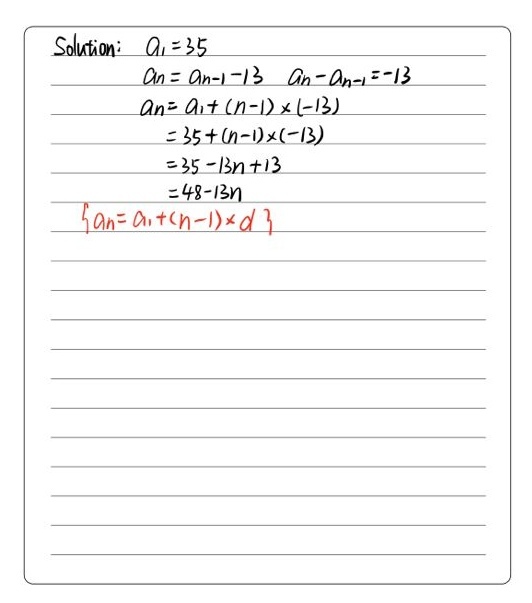 Solution: a₁ = 35
aₙ = aₙ₋₁ - 13 aₙ - aₙ₋₁ = -13
aₙ = a₁ + (n-1) × (-13)
= 35 + (n-1) × (-13)
= 35 - 13n + 13
= 48 - 13n
{aₙ = a₁ + (n-1) × d}